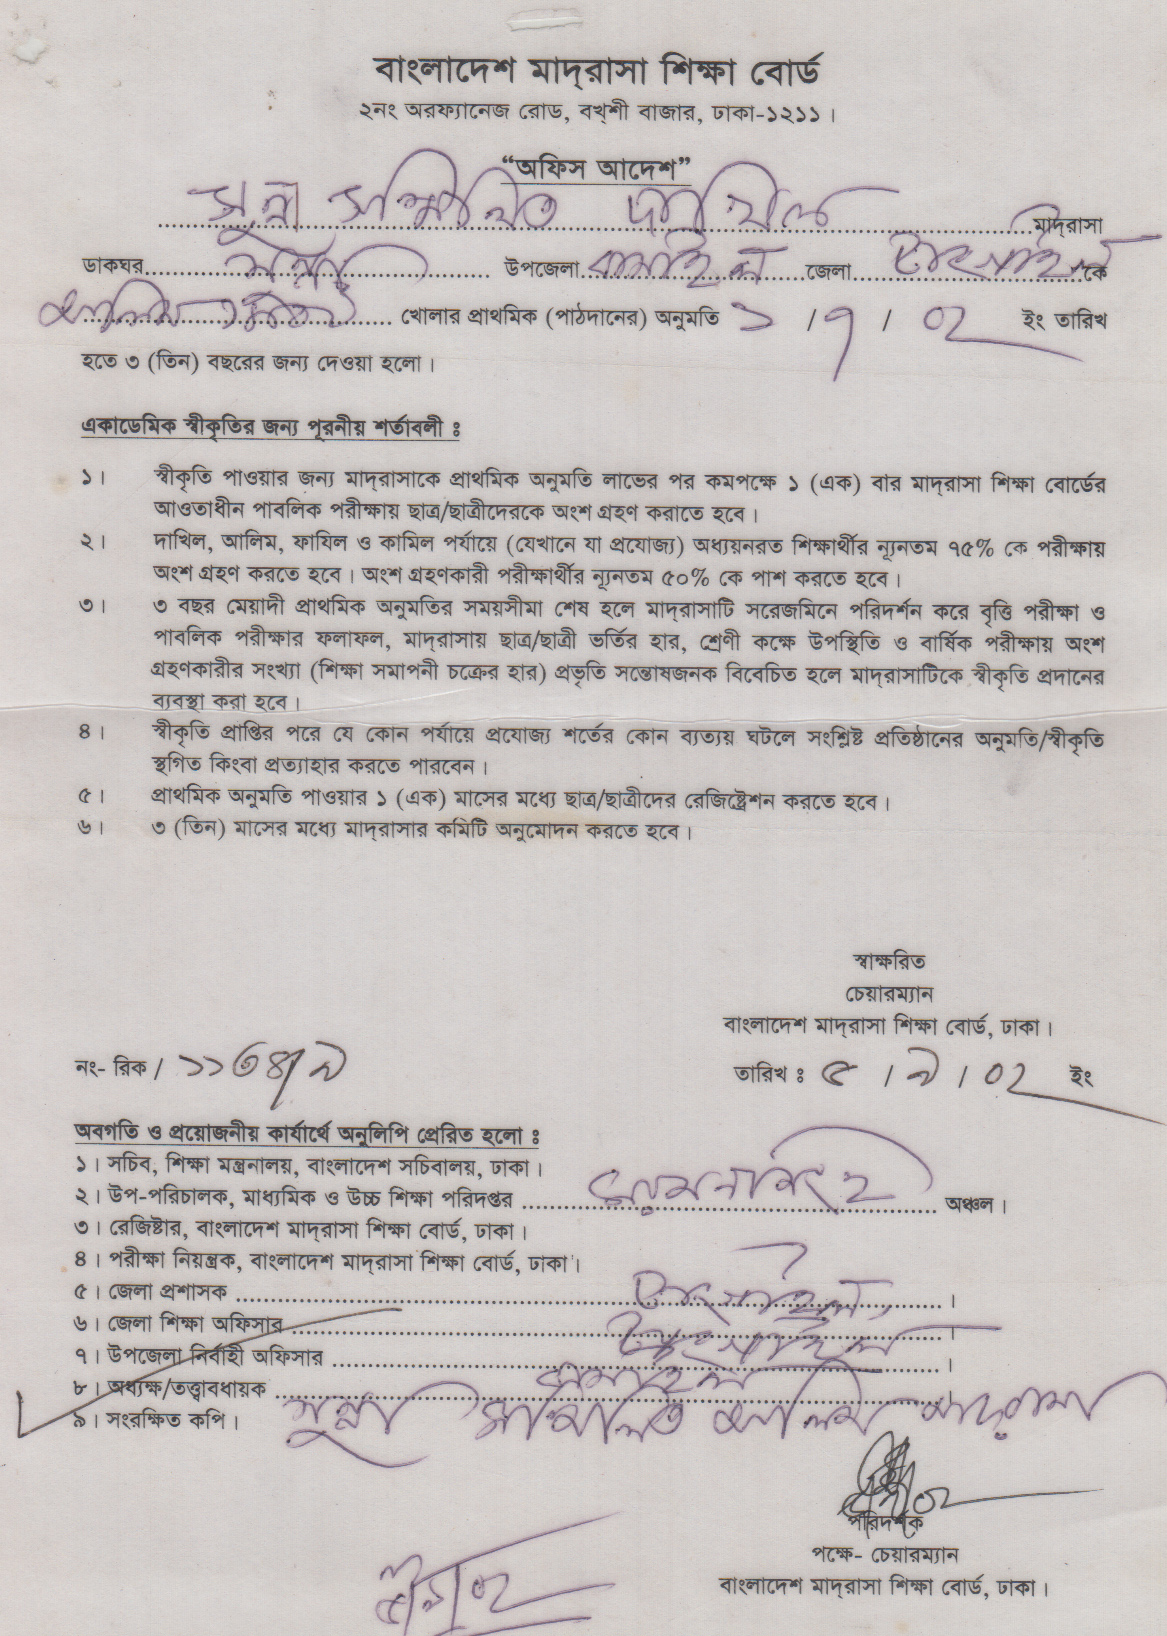 বাংলাদেশ মাদ্‌রাসা শিক্ষা বোর্ড
২নং অরফ্যানেজ রোড, বখ্‌শী বাজার, ঢাকা-১২১১।
“অফিস আদেশ”
সুন্না সম্মিলিত দাখিল মাদ্‌রাসা
ডাকঘর সুন্না উপজেলা বাসাইল জেলা টাংগাইল কে
আলিম খোলার প্রাথমিক (পাঠদানের) অনুমতি ১/৭/০২ ইং তারিখ
হতে ৩ (তিন) বছরের জন্য দেওয়া হলো।
একাডেমিক স্বীকৃতির জন্য পূরনীয় শর্তাবলী ঃ
১। স্বীকৃতি পাওয়ার জন্য মাদ্‌রাসাকে প্রাথমিক অনুমতি লাভের পর কমপক্ষে ১ (এক) বার মাদ্‌রাসা শিক্ষা বোর্ডের
আওতাধীন পাবলিক পরীক্ষায় ছাত্র/ছাত্রীদেরকে অংশ গ্রহণ করাতে হবে।
২। দাখিল, আলিম, ফাযিল ও কামিল পর্যায়ে (যেখানে যা প্রযোজ্য) অধ্যয়নরত শিক্ষার্থীর ন্যূনতম ৭৫% কে পরীক্ষায়
অংশ গ্রহণ করতে হবে। অংশ গ্রহণকারী পরীক্ষার্থীর ন্যূনতম ৫০% কে পাশ করতে হবে।
৩। ৩ বছর মেয়াদী প্রাথমিক অনুমতির সময়সীমা শেষ হলে মাদ্‌রাসাটি সরেজমিনে পরিদর্শন করে বৃত্তি পরীক্ষা ও
পাবলিক পরীক্ষার ফলাফল, মাদ্‌রাসায় ছাত্র/ছাত্রী ভর্তির হার, শ্রেণী কক্ষে উপস্থিতি ও বার্ষিক পরীক্ষায় অংশ
গ্রহণকারীর সংখ্যা (শিক্ষা সমাপনী চক্রের হার) প্রভৃতি সন্তোষজনক বিবেচিত হলে মাদ্‌রাসাটিকে স্বীকৃতি প্রদানের
ব্যবস্থা করা হবে।
৪। স্বীকৃতি প্রাপ্তির পরে যে কোন পর্যায়ে প্রযোজ্য শর্তের কোন ব্যত্যয় ঘটলে সংশ্লিষ্ট প্রতিষ্ঠানের অনুমতি/স্বীকৃতি
স্থগিত কিংবা প্রত্যাহার করতে পারবেন।
৫। প্রাথমিক অনুমতি পাওয়ার ১ (এক) মাসের মধ্যে ছাত্র/ছাত্রীদের রেজিষ্ট্রেশন করতে হবে।
৬। ৩ (তিন) মাসের মধ্যে মাদ্‌রাসার কমিটি অনুমোদন করতে হবে।
স্বাক্ষরিত
চেয়ারম্যান
বাংলাদেশ মাদ্‌রাসা শিক্ষা বোর্ড, ঢাকা।
নং- রিক / ১১৩৪/৯ তারিখ ঃ ৫/৯/০২ ইং
অবগতি ও প্রয়োজনীয় কার্যার্থে অনুলিপি প্রেরিত হলো ঃ
১। সচিব, শিক্ষা মন্ত্রনালয়, বাংলাদেশ সচিবালয়, ঢাকা।
২। উপ-পরিচালক, মাধ্যমিক ও উচ্চ শিক্ষা পরিদপ্তর ময়মনসিংহ অঞ্চল।
৩। রেজিষ্টার, বাংলাদেশ মাদ্‌রাসা শিক্ষা বোর্ড, ঢাকা।
৪। পরীক্ষা নিয়ন্ত্রক, বাংলাদেশ মাদ্‌রাসা শিক্ষা বোর্ড, ঢাকা।
৫। জেলা প্রশাসক টাংগাইল।
৬। জেলা শিক্ষা অফিসার টাংগাইল।
৭। উপজেলা নির্বাহী অফিসার বাসাইল।
৮। অধ্যক্ষ/তত্ত্বাবধায়ক সুন্না সম্মিলিত আলিম মাদ্‌রাসা
৯। সংরক্ষিত কপি।
পরিদর্শক
পক্ষে- চেয়ারম্যান
বাংলাদেশ মাদ্‌রাসা শিক্ষা বোর্ড, ঢাকা।
৫/৯/০২